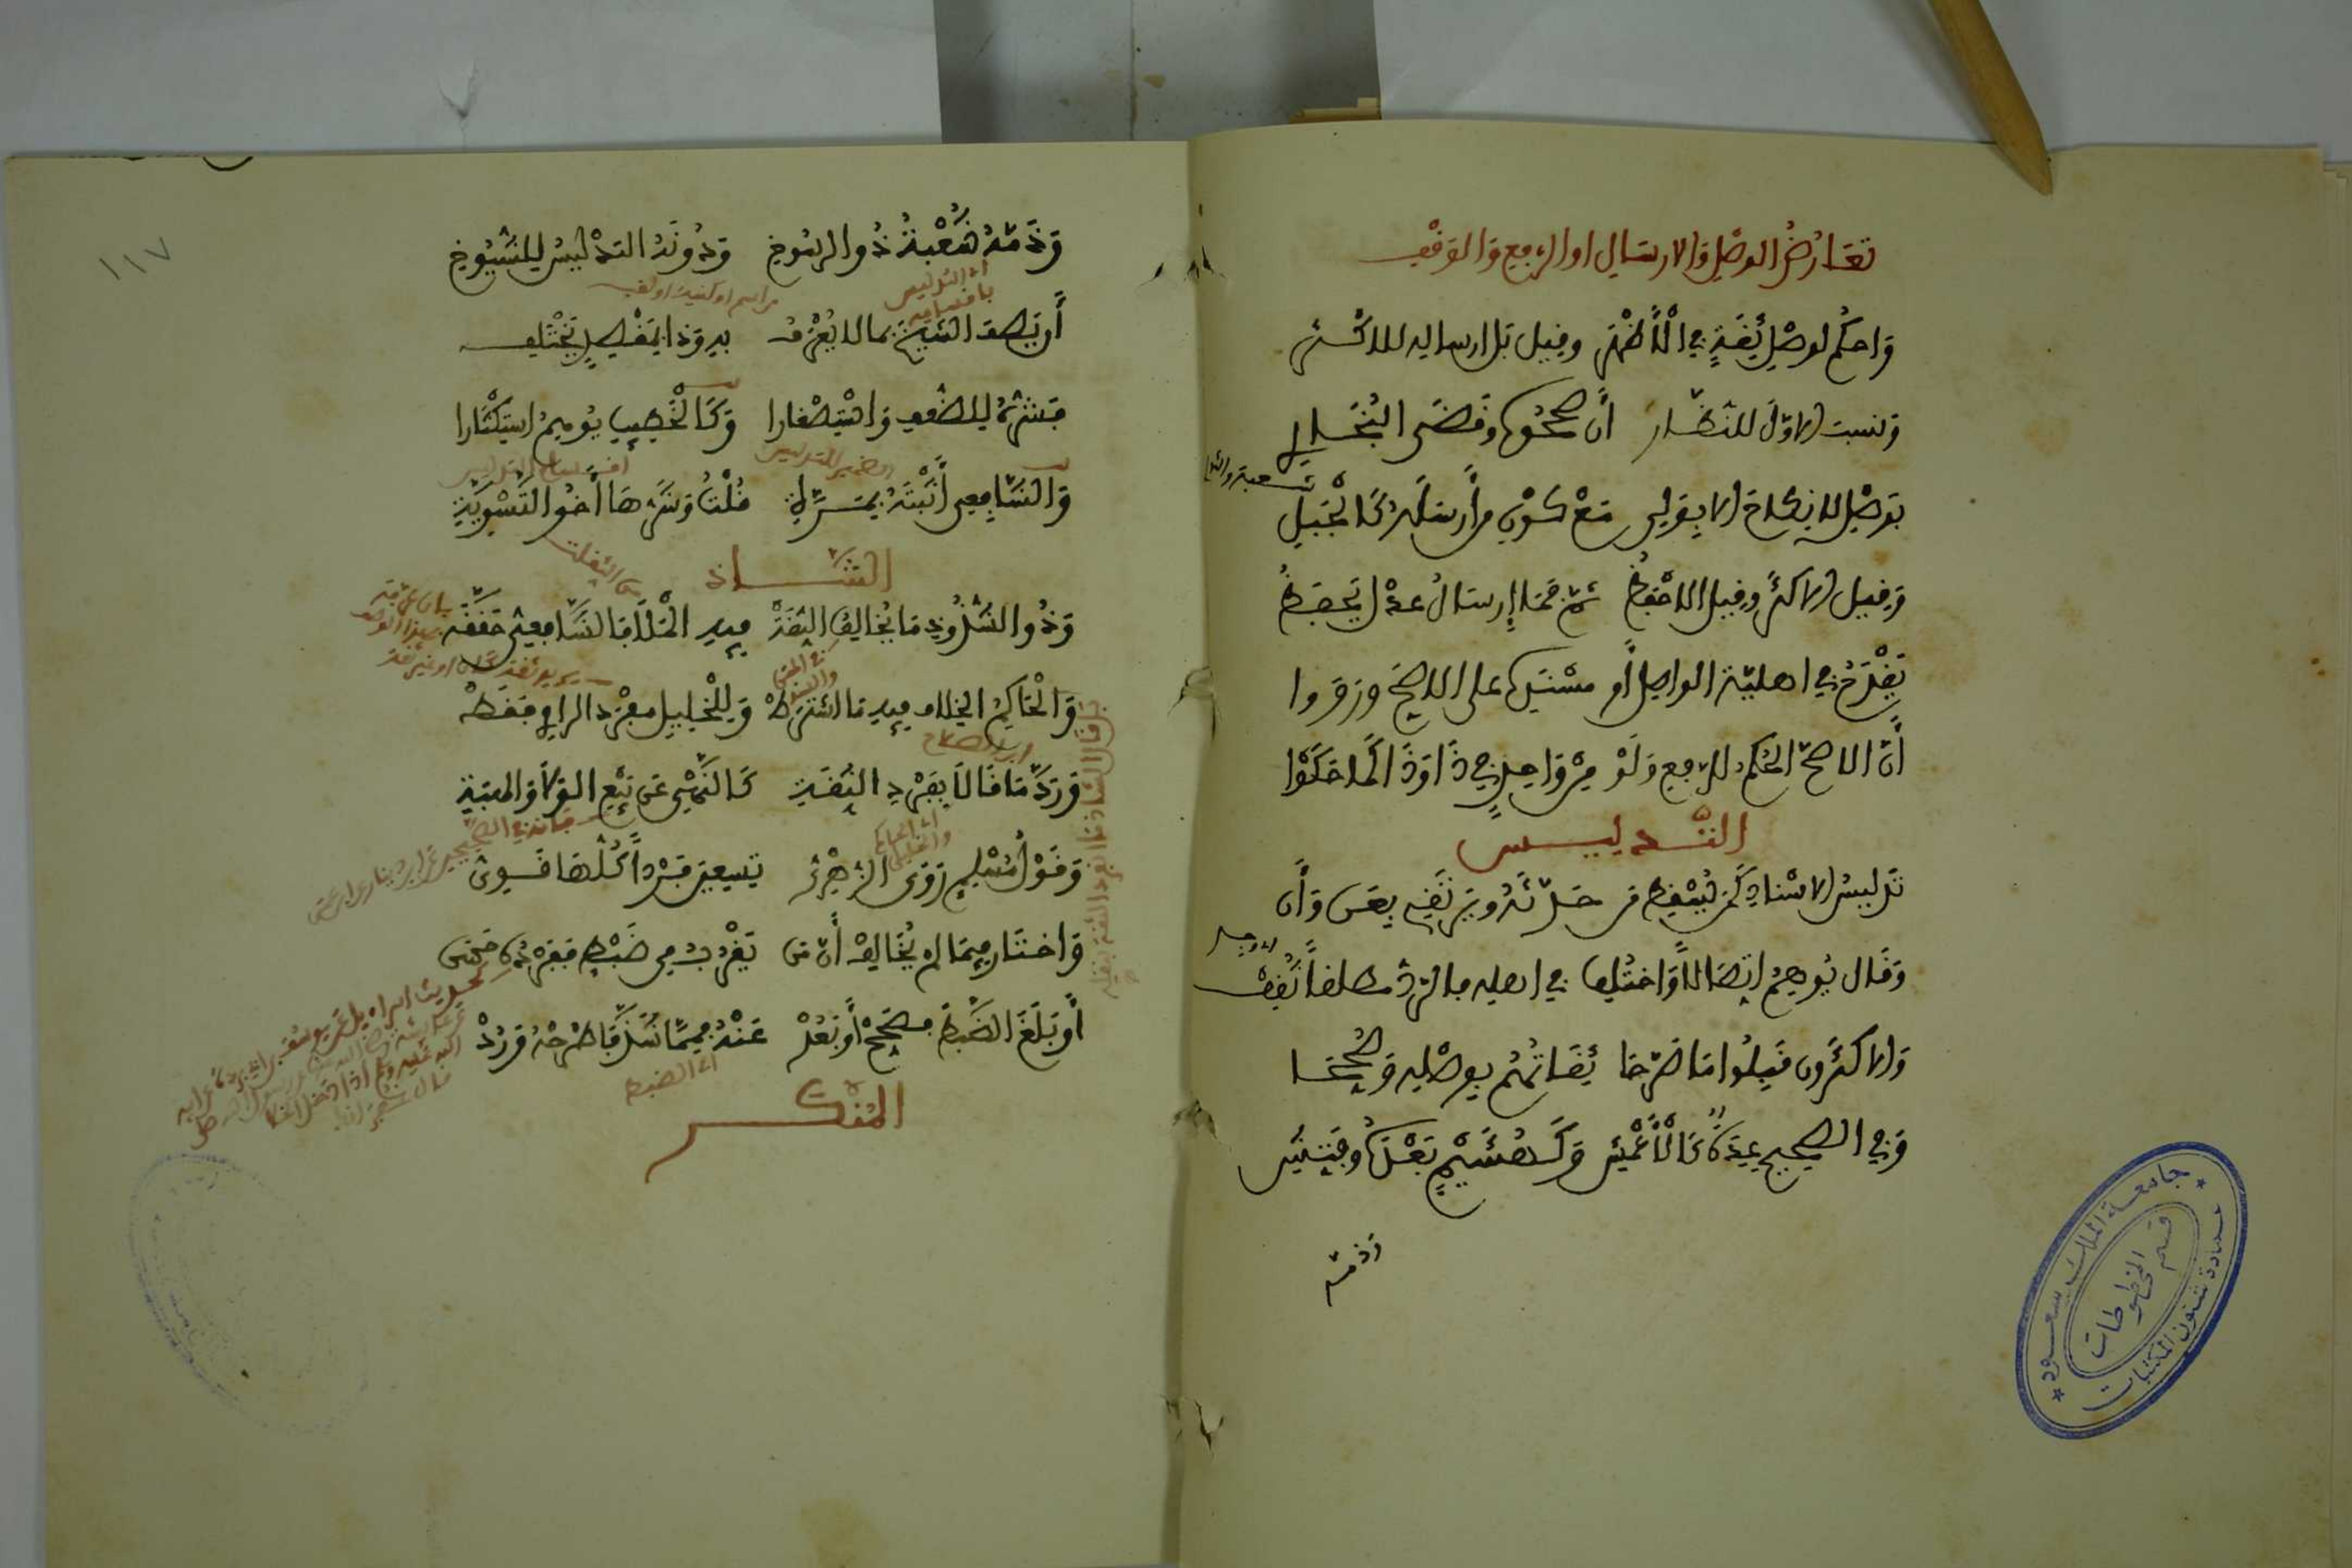 تعارض الوصل والارسال او الرفع والوقف
واحكم لوصل ثقة في الأظهر وقيل بل ارساله للاكثر
ونسب الاول للنظار أن صححوه وقضى البخاري
بوصل لا نكاح الا بولي مع كون من أرسله كالجبل
شعبة والثوري
وقيل الاكثر وقيل الاحفظ ثم فما إرسال عدل يحفظ
يقدح في اهلية الواصل أو مسنده على الاصح ورووا
أن الاصح الحكم للرفع ولو من واحد في ذا وذا كما حكوا
التدليس
تدليس الاسناد كمن يسقط من حدثه ويرتقي بعن وأن
وقال يوهم اتصالا واختلف في اهله فالرد مطلقا ثقف
والاكثرون قبلوا ما صرحا ثقاتهم بوصله وصححا
وفي الصحيح عدة كالأعمش وكهشيم بعده وفتش
وذمه
١١٧
وذمه شعبة ذو الرسوخ ودونه التدليس للشيوخ
من اسم او كنية او لقب
أن يصف الشيخ بما لا يعرف به وذا بمقصد يختلف
فشره للضعف واستصغارا وكالخطيب يوهم استكثارا
والشافعي أثبته بمرة قلت وشرها أخو التسوية
الشاذ
وذو الشذوذ ما يخالف الثقة فيه الملا فالشافعي حققه
والحاكم الخلاف فيه ما اشترط وللخليلي مفرد الراوي فقط
ابن الصلاح
ورد ما قالا بفرد الثقة كالنهي عن بيع الولا والهبة
اى الحاكم والخليلي
وقول مسلم روى الزهري تسعين فردا كلها قوي
واختار فيما لم يخالف أن من يقرب من ضبط ففرده حسن
أو بلغ الضبط فصحح أو بعد عنه فمما شذ فاطرحه ورد
اى الضبط
المنكر
جامعة الملك سعود
عمادة شئون المكتبات
قسم المخطوطات